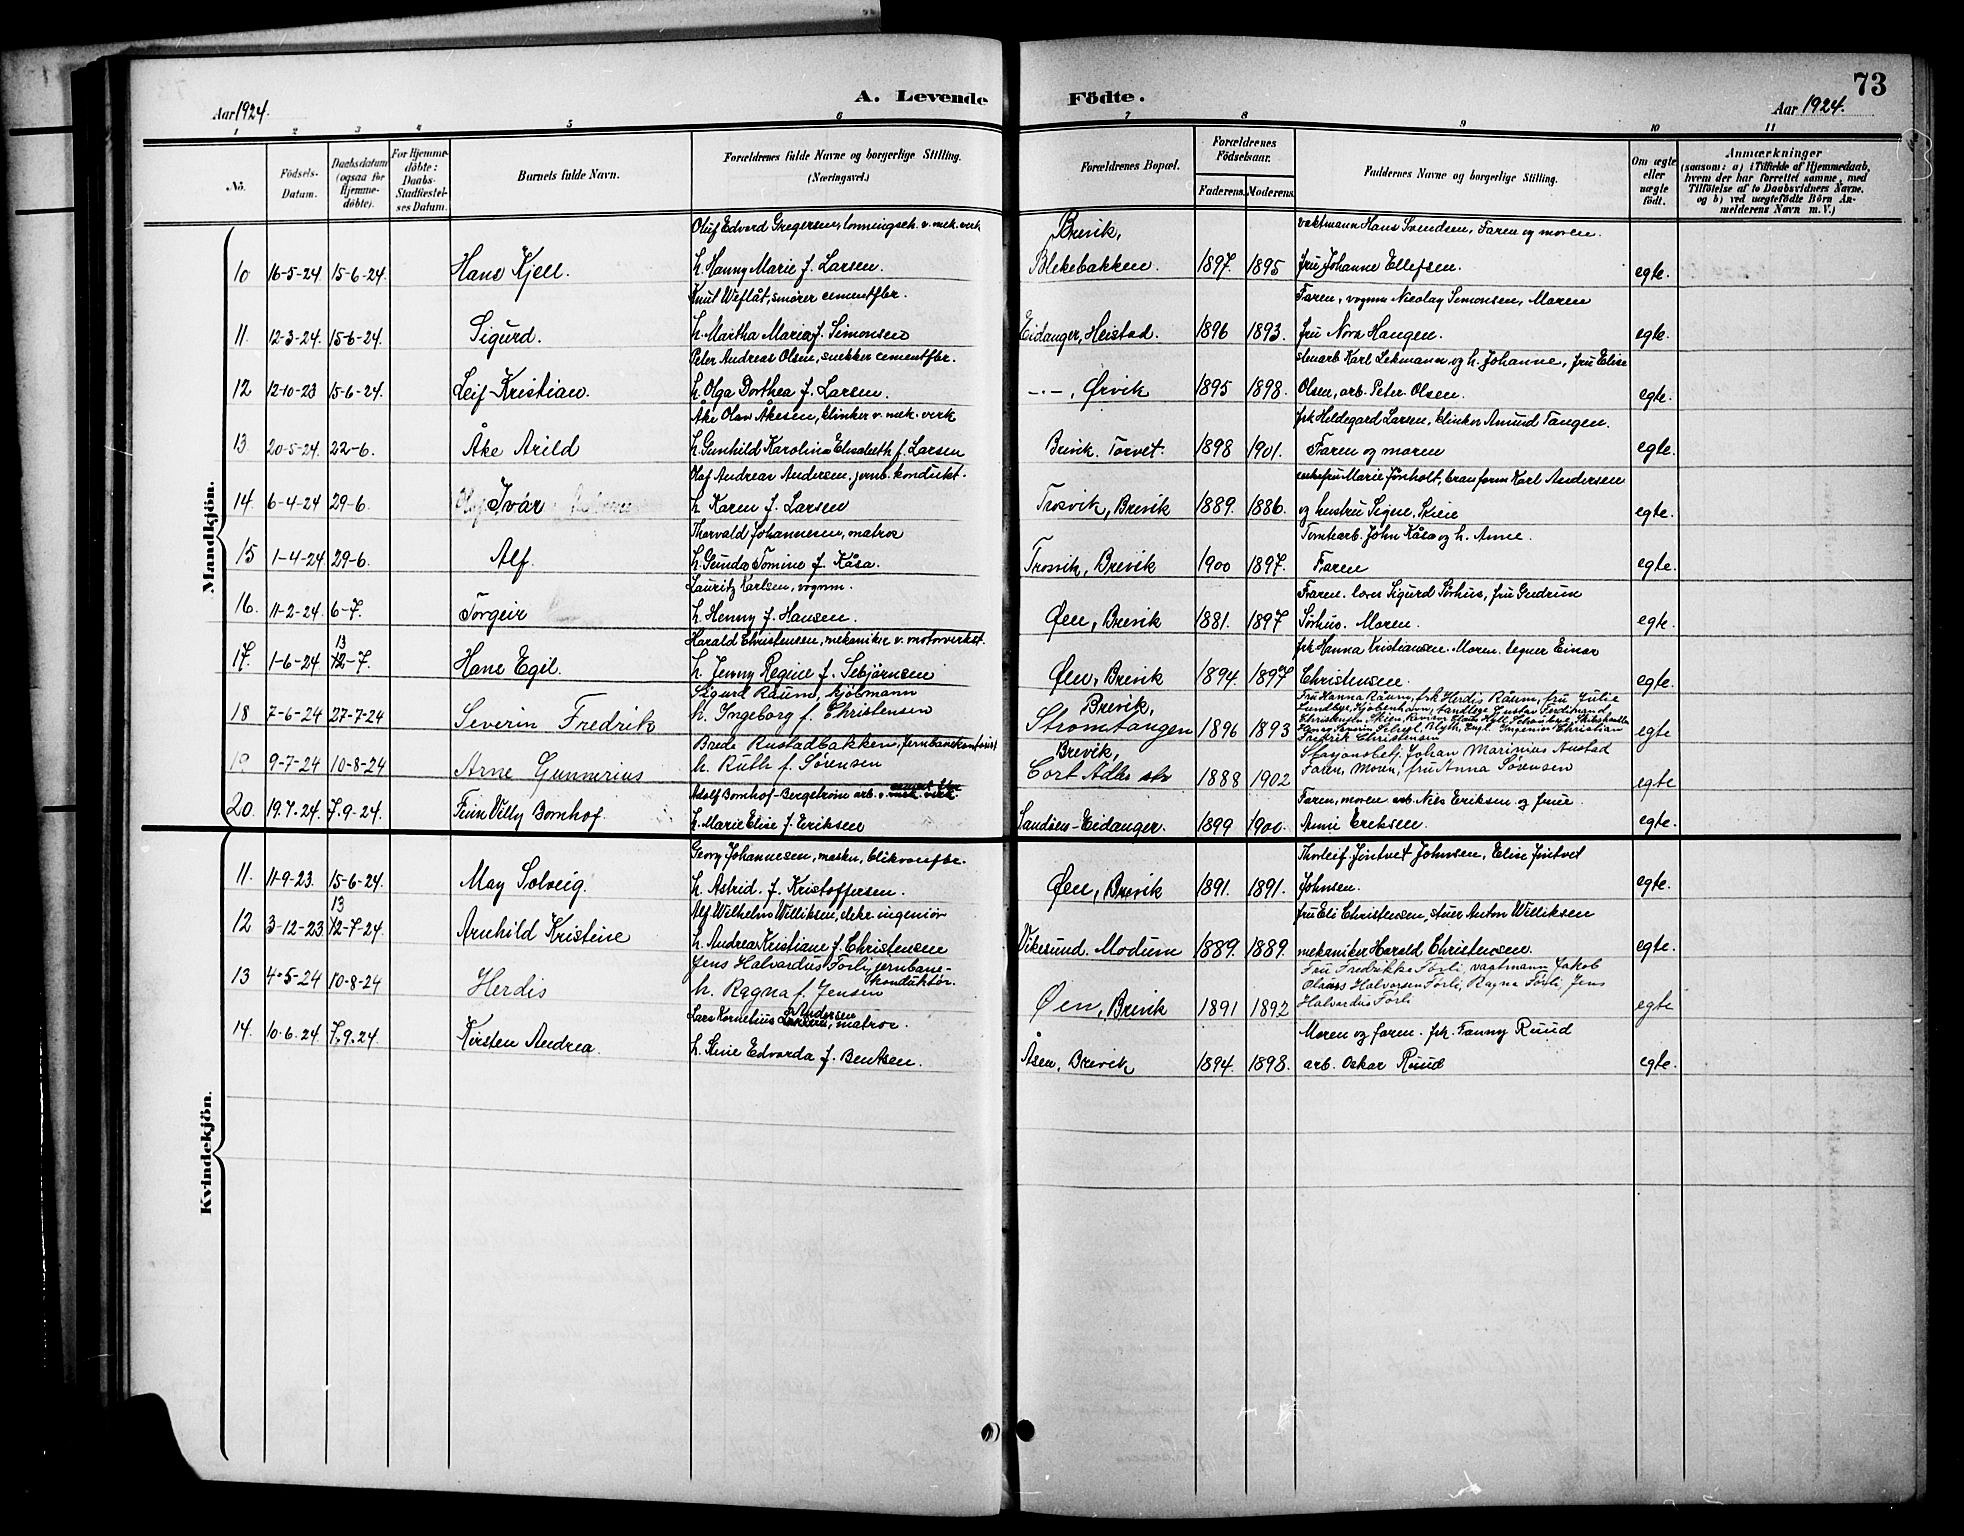 73
Aar 1924.
A. Levende Födte.
Aar 1924.
1 2 3 4 5 6 7 8 9 10 11
No.
Födsels-Datum.
Daabsdatum (ogsaa for Hjemmedöbte).
For Hjemmedöbte: Daabs-Stadfæstelses Datum.
Barnets fulde Navn.
Forældrenes fulde Navne og borgerlige Stilling. (Næringsvei.)
Forældrenes Bopæl.
Forældrenes Födselsaar.
Faderens. Moderens.
Faddernes Navne og borgerlige Stilling.
Om ægte eller uægte födt.
Anmærkninger (saasom: a) i Tilfælde af Hjemmedaab, hvem der har forrettet samme, med Tilföielse af to Daabsvidners Navne, og b) ved uægtefödte Börn Anmelderens Navn m. V.)
Mandkjön.
Oluf Edvard Gregersen, tonningsch. v. mek. verk Brevik, vaktmann Hans Svendsen, Faren og moren.
10 16-5-24 15-6-24. Hans Kjell. h. Hanny Marie f. Larsen. Blekebakken. 1897. 1895 fru Johanne Ellefsen. egte.
Knut Weflåt, smører cementfbr. Faren, vognm Nicolay Simonsen, Moren
11. 12-3-24. 15-6-24. Sigurd. h. Martha Maria f. Simonsen Eidanger, Heistad. 1896 1893. fru Nora Haugen. egte.
Peter Andreas Olsen, snekker cementfbr. stenarb. Karl Lekmann og h. Johanne, fru Elise
12 12-10-23 15-6-24. Leif Kristian. h. Olga Dorthea f. Larsen. -·-, Ørvik 1895 1898. Olsen, arb. Peter Olsen. egte.
Åke Olav Åkesen, klinker v. mek. verk frk Hildegard Larsen, klinker Amund Tangen.
13 20-5-24. 22-6. Åke Arild h. Gunhild Karoline Elisabeth f. Larsen Brevik. Torvet. 1898 1901. Faren og moren egte.
Olaf Andreas Andersen, jernb. kondukt. enkefru Marie Jønholt, branform Karl Andersen
14. 6-4-24 29-6. Ivar h. Karen f. Larsen Trosvik, Brevik 1889. 1886. og hustru Signe, Skeie egte.
Thorvald Johannesen, matros Tomtearb. John Kåsa og h. Anne.
15 1-4-24 29-6. Alf. h. Gunda Tomine f. Kåsa. Trosvik, Brevik 1900 1897. Faren egte.
Lauritz Karlsen, vognm. Faren. lærer Sigurd Sørhus, fru Gudrun
16. 11-2-24. 6-7. Torgeir h. Henny f. Hansen. Øen, Brevik 1881. 1897 Sørhus. Moren. egte.
Harald Christensen, mekaniker v. motorverket. frk Hanna Kristiansen. Moren. tegner Einar
17. 1-6-24 13 12-7. Hans Egil. h. Jenny Regine f. Sebjørnsen Øen, Brevik 1894. 1897 Christensen. egte.
Sigurd Raum, kjøbmann Brevik, Fru Hanna Raum, frk Herdis Raum, fru Julie
18 7-6-24 27-7-24 Severin Fredrik h. Ingeborg f. Christensen Stromtangen 1896 1893 Lundbye, Kjøbenhavn, tandlæge Gustav Ferdinand, egte
Fredrik Christensen
Brede Rustadbakken, Jernbanekontorist Brevik, Stasjonsbetj. Johan Marinius Austad
19 9-7-24 10-8-24 Arne Gunnerius h. Ruth f. Sørensen Cort Adlers str 1888 1902 Faren, Moren, fru Anna Sørensen egte
Adolf Bomhof-Bergstrøm arb. v. cement fbr mek. verk. Faren, moren arb. Nils Eriksen og frue
20. 19.7.24. 7.9-24. Finn Villy Bomhof. h. Marie Elise f. Eriksen Sandøen-Eidanger. 1899 1900. Anni Eriksen. egte.
Kvindekjön.
Georg Johannesen, maskn, blikvarefbr. Thorleif Jøntvet Johnsen, Elise Jøntvet
11. 11-9-23. 15-6-24. May Solveig. h. Astrid. f. Kristoffersen. Øen, Brevik 1891. 1891. Johnsen. egte.
Alf Wilhelm Williksen, elekr. ingeniør fru Eli Christensen, stuer Anton Williksen
12 3-12-23 13 12-7-24. Arnhild Kristine h. Andrea Kristiane f. Christensen Vikesund. Modum 1889. 1889. mekaniker Harald Christensen. egte.
Jens Halvardus Førli, jernbane-konduktør. Fru Fredrikke Førli, vagtmann Jakob
13 4-5-24 10-8-24 Herdis h. Ragna f. Jensen Øen, Brevik 1891 1892 Olaus Halvorsen Førli, Ragna Førli, Jens Halvardus Førli egte
Lars Kornelius Andersen, matros. Moren og faren. frk. Fanny Ruud
14. 10-6.24 7.9.24. Kirsten Andrea. h. Stine Edvarda f. Bentsen. Åsen, Brevik 1894. 1898. arb. Oskar Ruud egte.